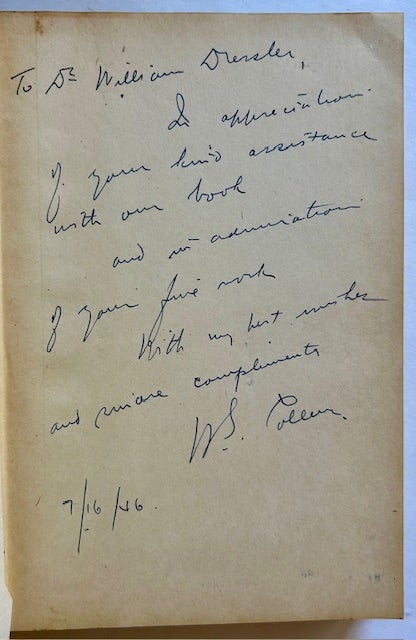 To Dr William Dressler,
In appreciation
of your kind assistance
with our book
and in admiration
of your fine work
With my best wishes
and sincere compliments
W.S.
9/16/46.